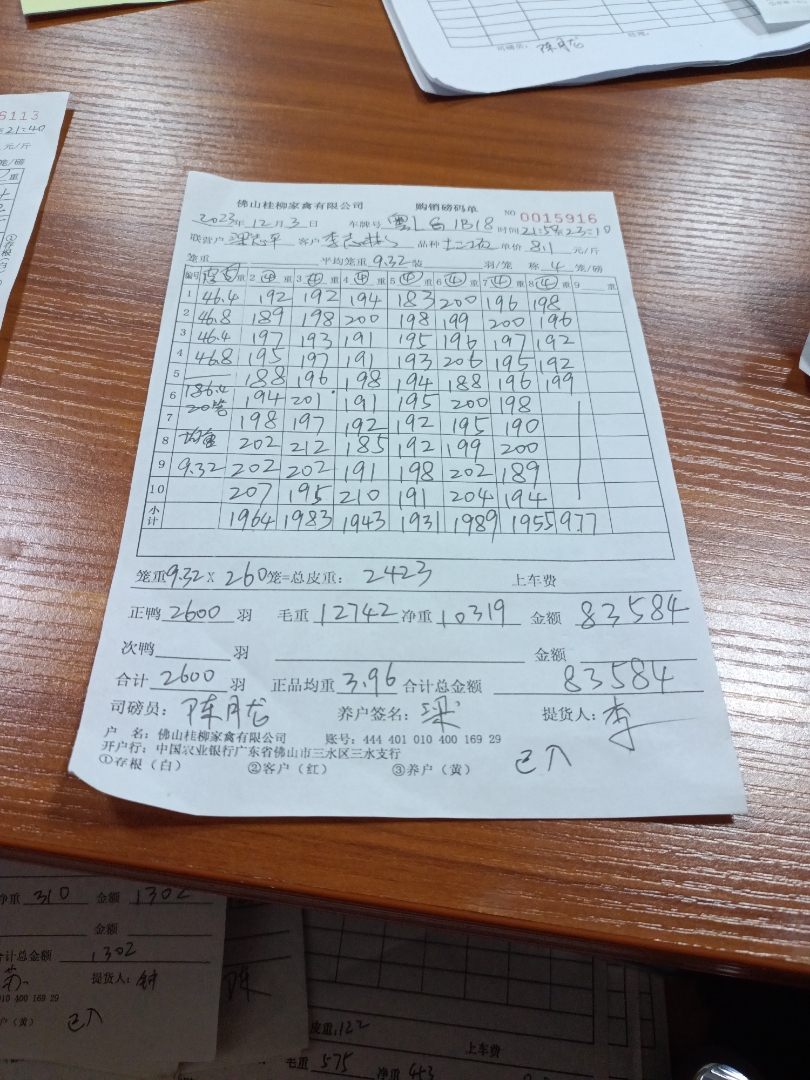 司磅员：陈月龙
6113
21:40
元/斤
笼/磅
佛山桂柳家禽有限公司 购销磅码单 NO 0015916
2023年12月3日 车牌号 粤L61B18 时间21:58至23:10
联营户 客户 品种 单价 8.1 元/斤
笼重 平均笼重 9.32 装 羽/笼 称 4 笼/磅
编号 重 2 ④ 重 3 ④ 重 4 ④ 重 5 ④ 重 6 ④ 重 7 ④ 重 8 ④ 重 9 重
1 46.4 192 192 194 183 200 196 198
2 46.8 189 198 200 198 199 200 196
3 46.4 197 193 191 195 196 197 192
4 46.8 195 197 191 193 206 195 192
5 188 196 198 194 188 196 199
6 186.4 194 201 191 195 200 198
7 20笼 198 197 192 192 195 190
8 均重 202 212 185 192 199 200
9 9.32 202 202 191 198 202 189
10 207 195 210 191 204 194
小计 1964 1983 1943 1931 1989 1955 977
笼重9.32×260笼=总皮重：2423 上车费
正鸭 2600 羽 毛重 12742 净重 10319 金额 83584
次鸭 羽 金额
合计 2600 羽 正品均重 3.96 合计总金额 83584
司磅员：陈月龙 养户签名：梁 提货人：李
户 名：佛山桂柳家禽有限公司 账号：444 401 010 400 169 29
开户行：中国农业银行广东省佛山市三水区三水支行
①存根（白） ②客户（红） ③养户（黄） 已入
净重 310 金额 1302
金额
合计总金额 1302
提货人：
010 400 169 29
户（黄） 已入
皮重：122
上车费
毛重 575 净重 443